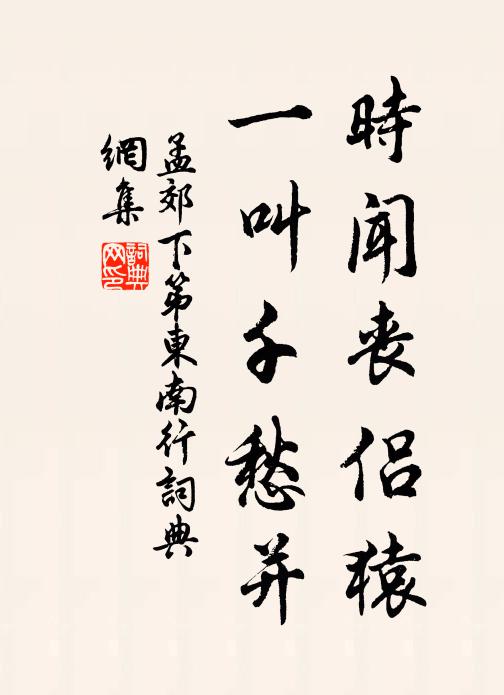 時聞喪侶猿
一叫千愁并
孟郊下第東南行詞典
網集
詞典網印